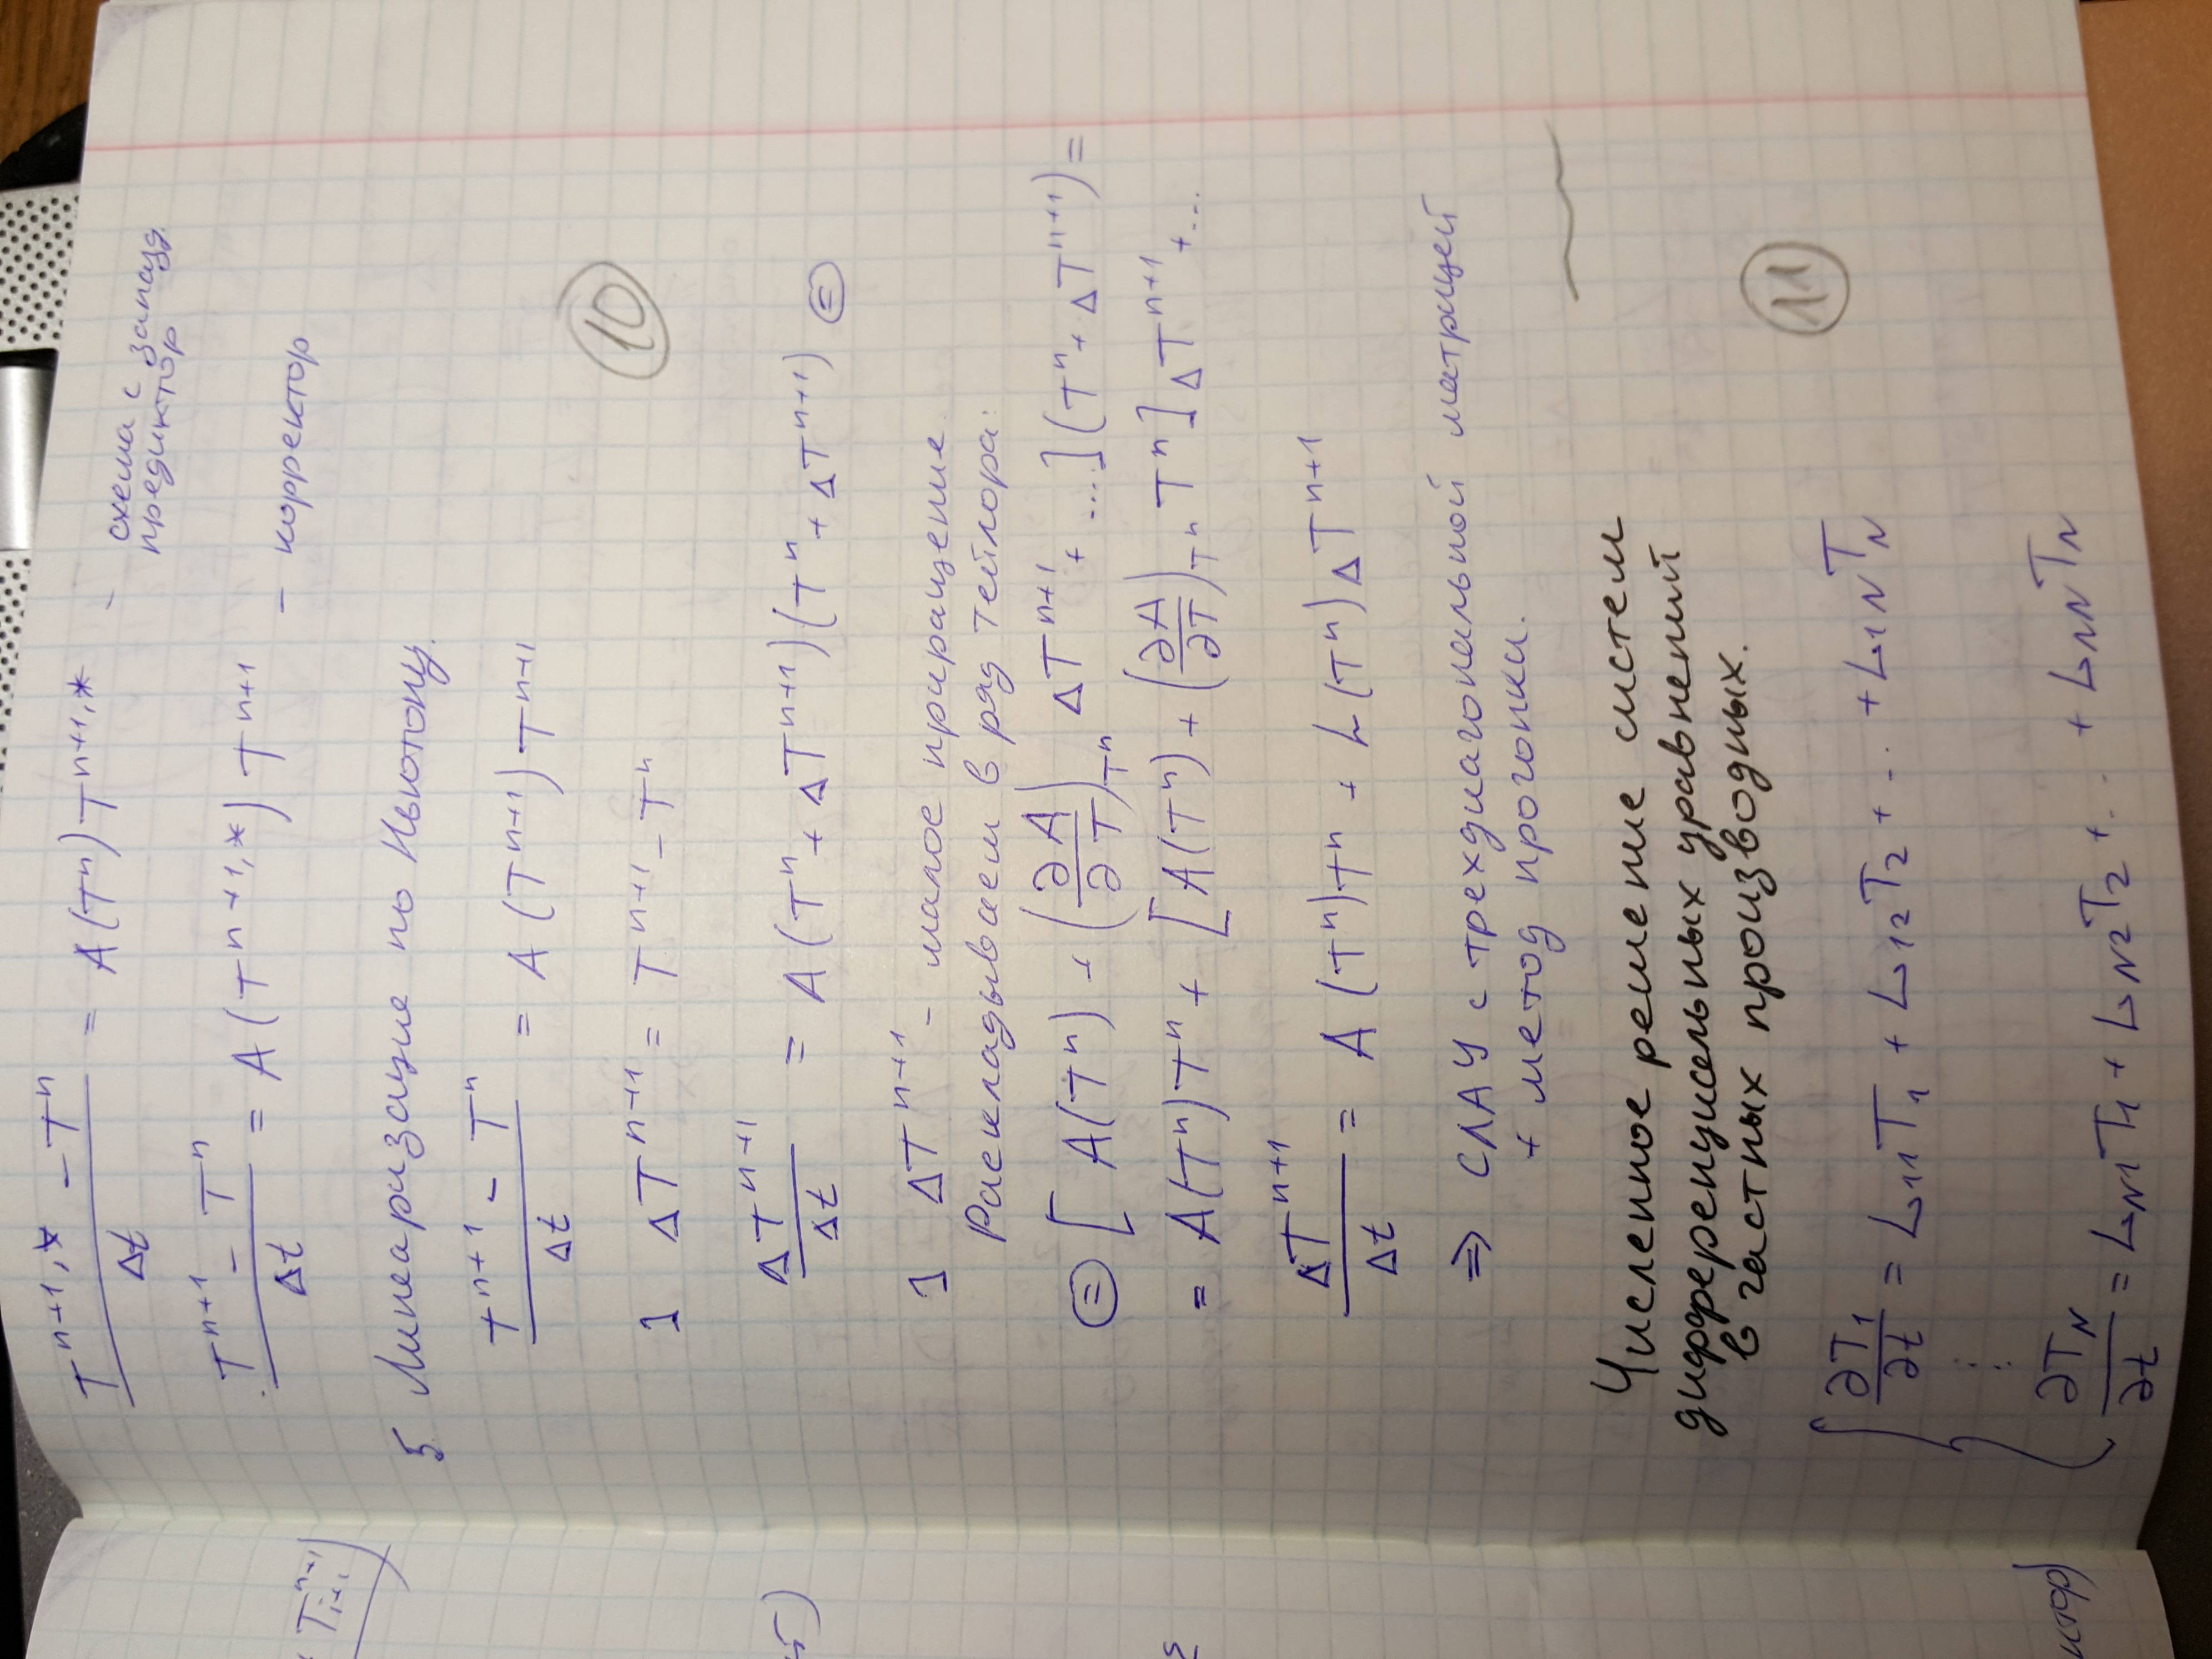 (T^{n+1,*} - T^n)/Δt = A(T^n) T^{n+1,*} - схема с запазд.
предиктор
(T^{n+1} - T^n)/Δt = A(T^{n+1,*}) T^{n+1} - корректор
T_{i+1}^{n+1})
5. Линеаризация по Ньютону.
(T^{n+1} - T^n)/Δt = A(T^{n+1}) T^{n+1}
10
] ΔT^{n+1} = T^{n+1} - T^n
ΔT^{n+1}/Δt = A(T^n + ΔT^{n+1})(T^n + ΔT^{n+1}) ⊜
] ΔT^{n+1} - малое приращение
Раскладываем в ряд Тейлора:
⊜ [A(T^n) + (∂A/∂T)_{T^n} ΔT^{n+1} + ...](T^n + ΔT^{n+1}) =
= A(T^n)T^n + [A(T^n) + (∂A/∂T)_{T^n} T^n] ΔT^{n+1} + ...
ΔT^{n+1}/Δt = A(T^n)T^n + L(T^n)ΔT^{n+1}
⇒ СЛАУ с трехдиагональной матрицей
+ метод прогонки.
Численное решение систем
дифференциальных уравнений
в частных производных.
11
{ ∂T_1/∂t = L_{11}T_1 + L_{12}T_2 + ... + L_{1N}T_N
⋮
∂T_N/∂t = L_{N1}T_1 + L_{N2}T_2 + ... + L_{NN}T_N
ктор)